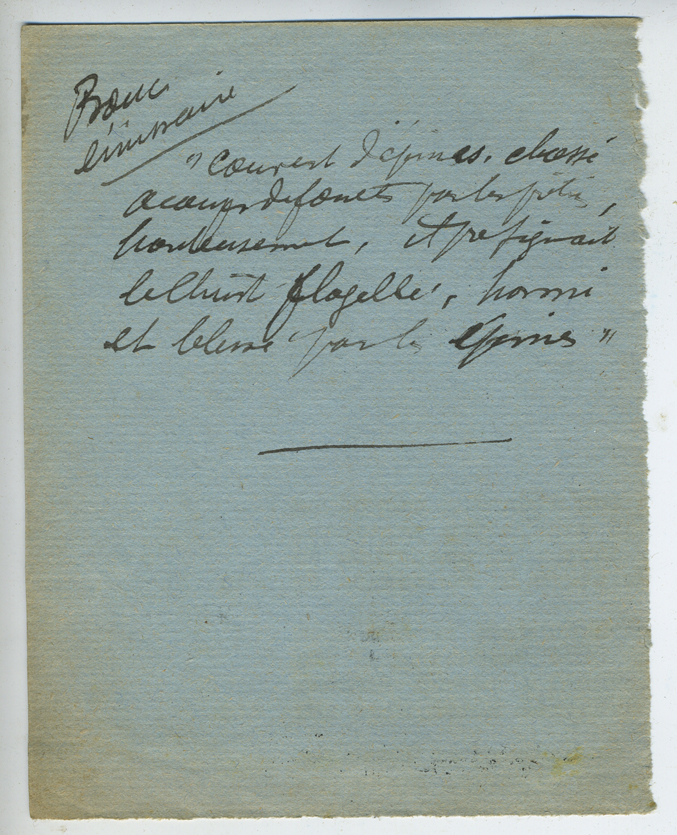 Bouc
émissaire
"couvert d'épines, chassé
a coups de fouets par les prêtres,
honteusement, il préfigurait
le Christ flagellé, honni
et blessé par les épines"